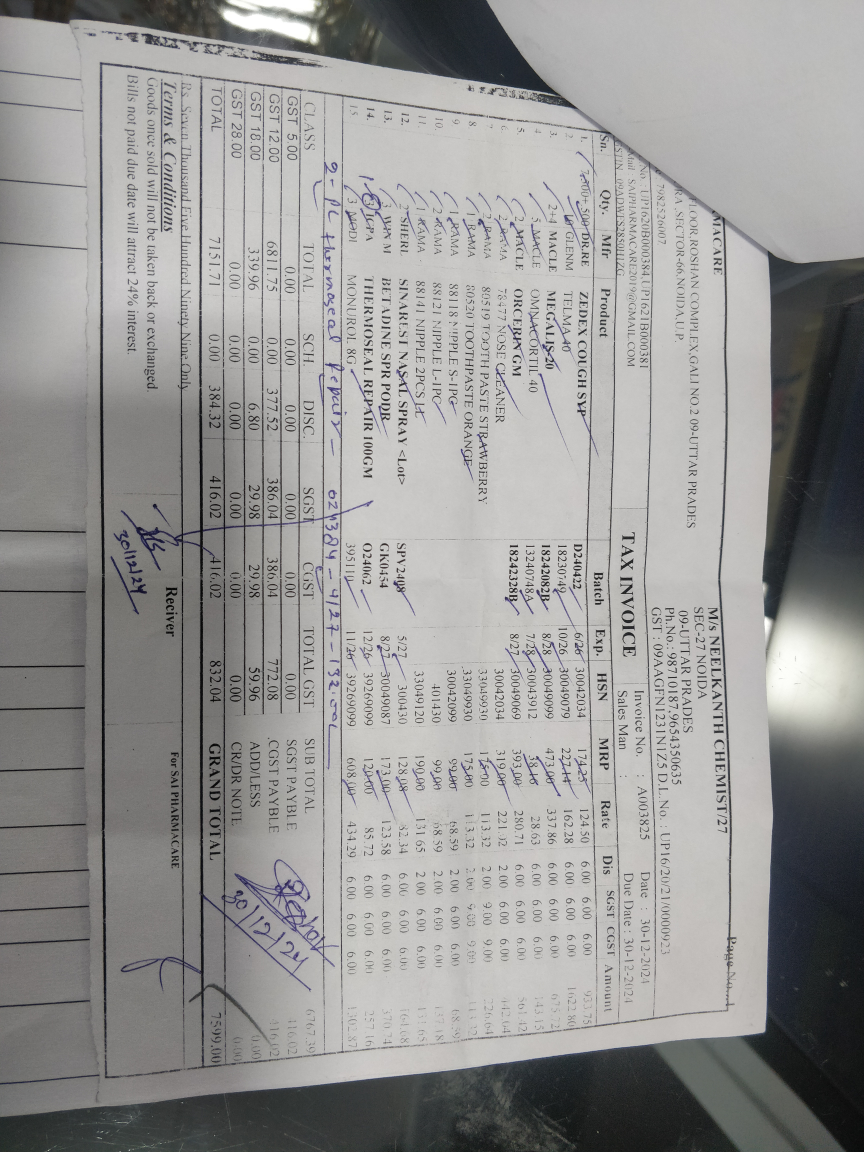 MACARE
FLOOR,ROSHAN COMPLEX,GALI NO.2 09-UTTAR PRADES
RA ,SECTOR-66,NOIDA,U.P.
7982526007
No.: UP1620B000384,UP1621B000381
SAIPHARMACARE2019@GMAIL.COM
Page No...1
M/s NEELKANTH CHEMIST/27
SEC-27 NOIDA
09-UTTAR PRADES
Ph.No.:98710187,9654350635
GST : 09AAGFN1231N1Z5 D.L.No. : UP16/20/21/0000923
TAX INVOICE
Invoice No. : A003825 Date : 30-12-2024
Sales Man : Due Date : 30-12-2024
Sn. Qty. Mfr Product Batch Exp. HSN MRP Rate Dis SGST CGST Amount
1. DR.RE ZEDEX COUGH SYP D240422 6/26 30042034 174.25 124.50 6.00 6.00 6.00 933.75
2. GLENM TELMA 40 18230749 10/26 30049079 227.14 162.28 6.00 6.00 6.00 1622.80
3. 2+4 MACLE MEGALIS-20 18242082B 8/28 30049099 473.00 337.86 6.00 6.00 6.00 675.72
4. 5 MACLE OMNACORTIL 40 13240748A 7/28 30043912 28.63 6.00 6.00 6.00 143.15
5. 2 MACLE ORCERIN GM 18242328B 8/27 30049069 393.00 280.71 6.00 6.00 6.00 561.42
6. 2 RAMA 78477 NOSE CLEANER 30042034 319.00 221.02 2.00 6.00 6.00 442.04
7. 2 RAMA 80519 TOOTH PASTE STRAWBERRY 33049930 175.00 113.32 2.00 9.00 9.00 226.64
8. 1 RAMA 80520 TOOTHPASTE ORANGE 33049930 175.00 113.32 2.00 9.00 9.00 113.32
9. 1 RAMA 88118 NIPPLE S-1PC 30042099 99.00 68.59 2.00 6.00 6.00 68.59
10. 2 RAMA 88121 NIPPLE L-1PC 401430 99.00 68.59 2.00 6.00 6.00 137.18
11. 1 RAMA 88141 NIPPLE 2PCS LL 33049120 190.00 131.65 2.00 6.00 6.00 131.65
12. 2 SHERI. SINAREST NASAL SPRAY <Lot> SPV2408 5/27 300430 128.08 82.34 6.00 6.00 6.00 164.68
13. 3 WIN M BETADINE SPR PODR GK0454 8/27 30049087 173.00 123.58 6.00 6.00 6.00 370.74
14. ICPA THERMOSEAL REPAIR 100GM O24062 12/26 39269099 120.00 85.72 6.00 6.00 6.00 257.16
15. 3 MODI MONUROL 8G 395110 11/26 39269099 608.00 434.29 6.00 6.00 6.00 1302.87
2 - PC thermoseal Repair - 024384 - 4/27 - 132.00
CLASS TOTAL SCH. DISC. SGST CGST TOTAL GST
GST 5.00 0.00 0.00 0.00 0.00 0.00 0.00
GST 12.00 6811.75 0.00 377.52 386.04 386.04 772.08
GST 18.00 339.96 0.00 6.80 29.98 29.98 59.96
GST 28.00 0.00 0.00 0.00 0.00 0.00 0.00
TOTAL 7151.71 0.00 384.32 416.02 416.02 832.04
SUB TOTAL 6767.39
SGST PAYBLE 416.02
CGST PAYBLE 416.02
ADD/LESS 0.00
CR/DR NOTE 0.00
GRAND TOTAL 7599.00
30/12/24
Rs. Seven Thousand Five Hundred Ninety Nine Only
Terms & Conditions
Goods once sold will not be taken back or exchanged.
Bills not paid due date will attract 24% interest.
Reciver
30/12/24
For SAI PHARMACARE